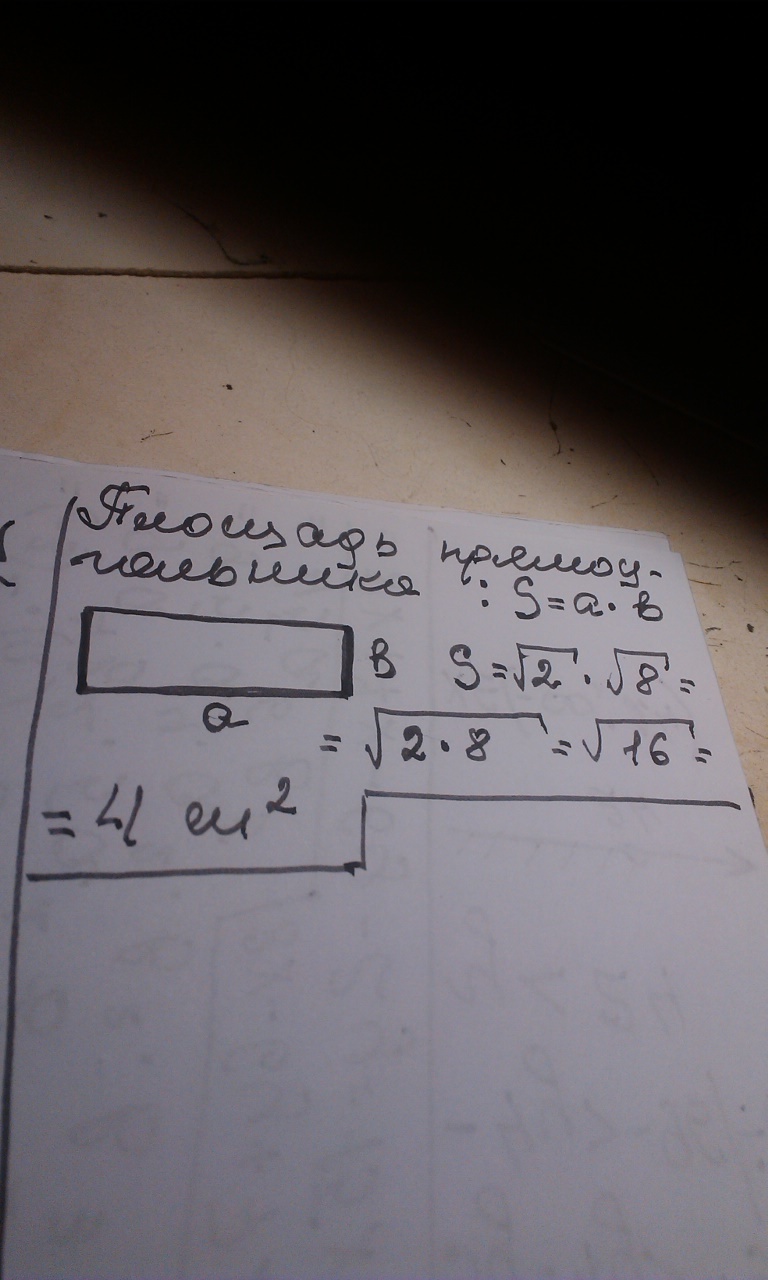 Площадь прямоу-
гольника : S = a · в
в S = √2 · √8 =
a
= √2 · 8 = √16 =
= 4 см²